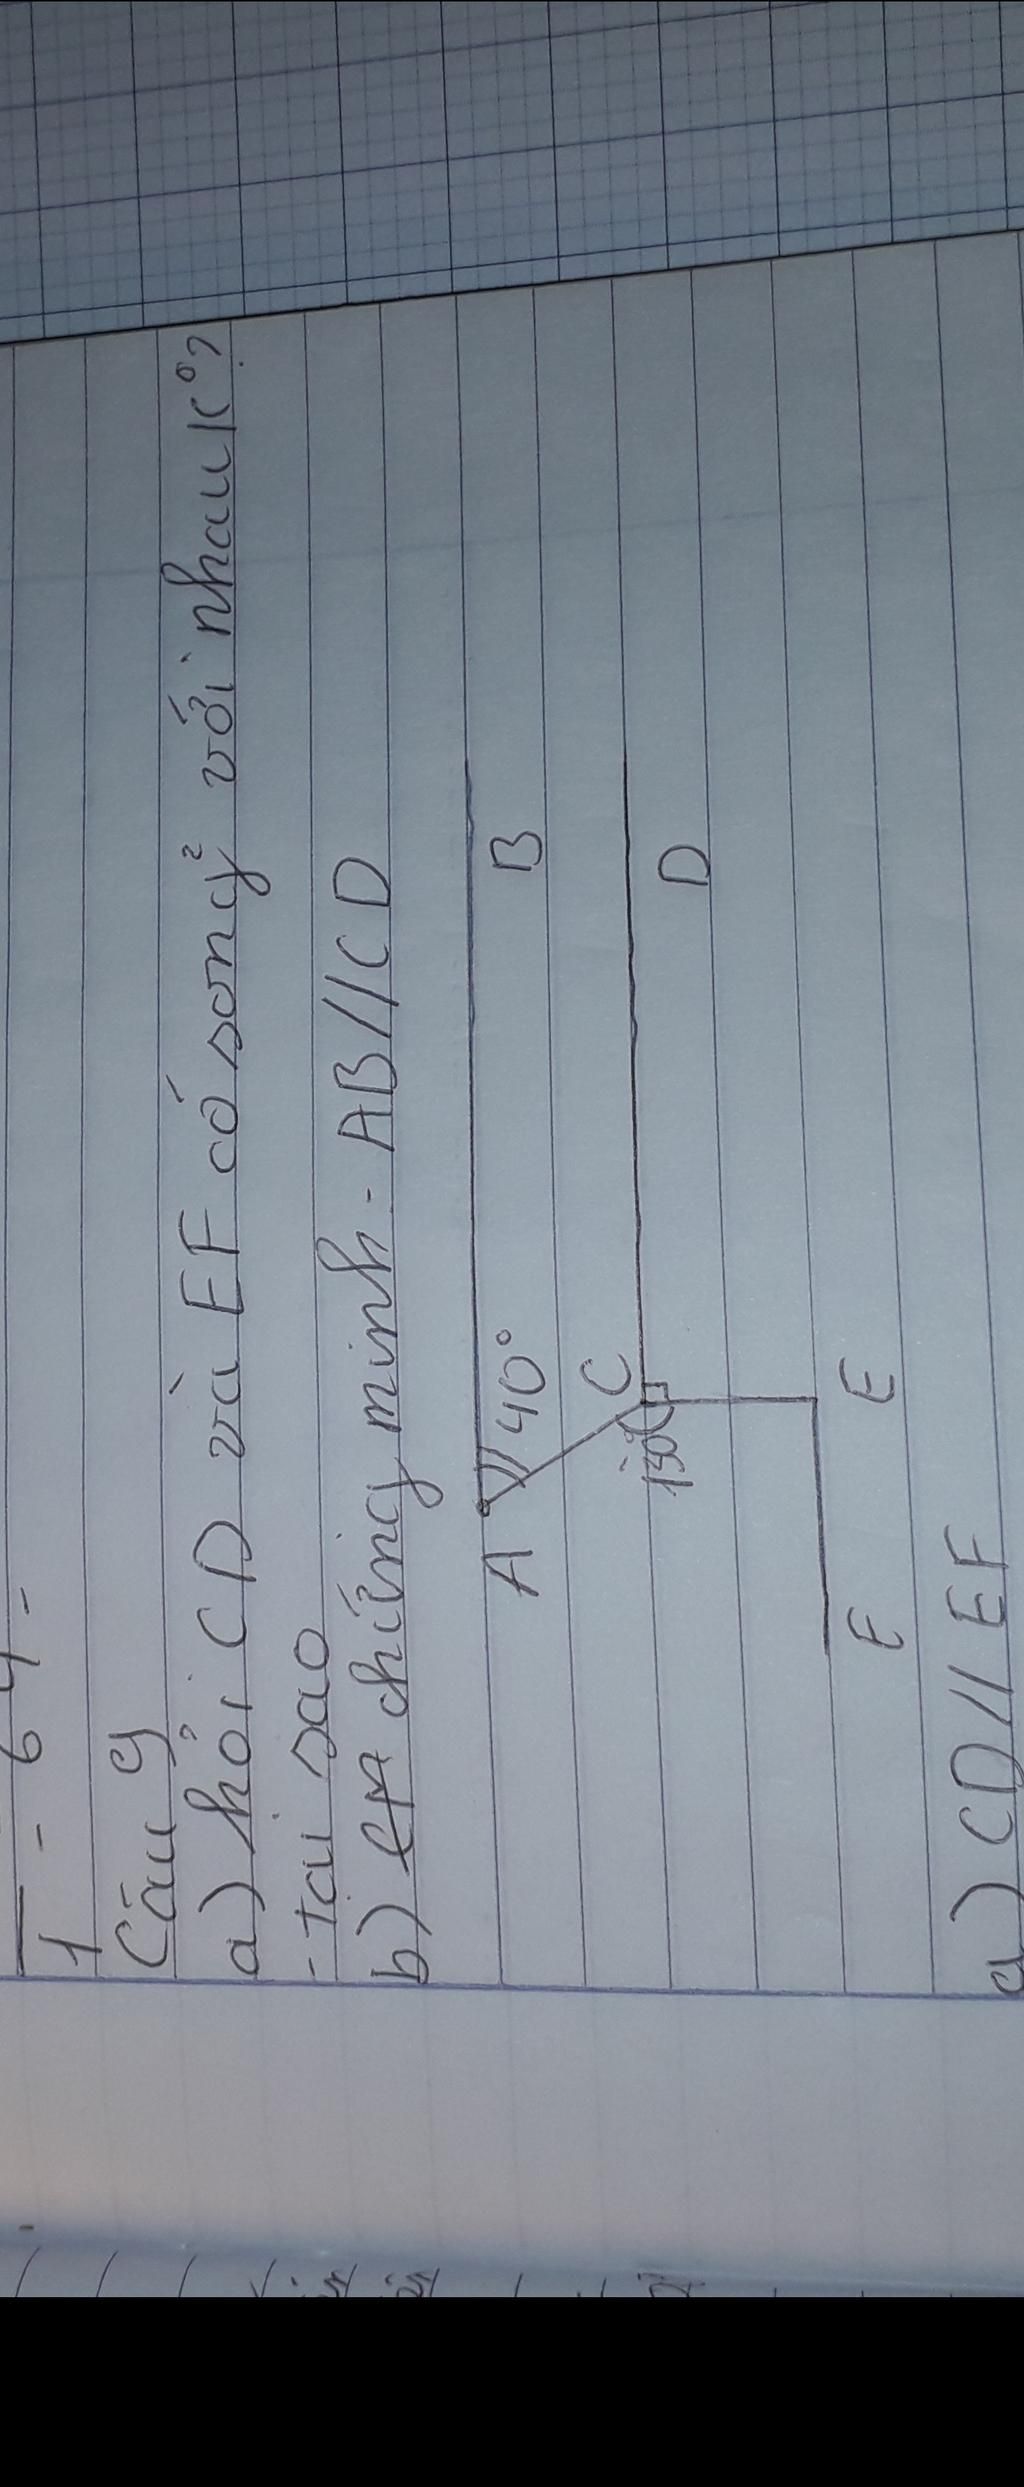 1 - 6 4 -
Câu 9
a) hỏi CD và EF có song² với nhau k°?
- tại sao
b) chứng minh - AB//CD
A 40° B
C D
130°
F E
a) CD // EF